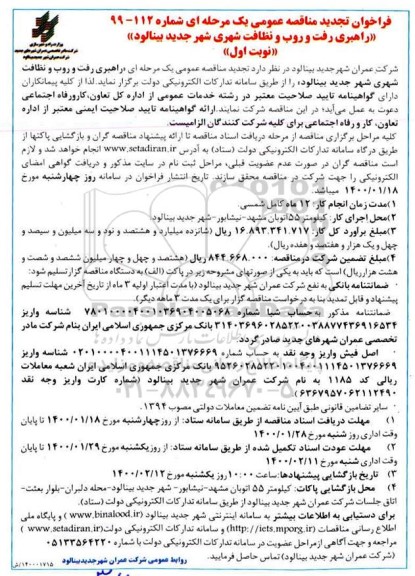 فراخوان تجدید مناقصه عمومی یک مرحله ای شماره ۱۱۲-۹۹
«راهبری رفت و روب و نظافت شهری شهر جدید بینالود»
«نوبت اول»
شرکت عمران شهرجدید بینالود در نظر دارد تجدید مناقصه عمومی یک مرحله ای «راهبری رفت و روب و نظافت
شهری شهر جدید بینالود» را از طریق سامانه تدارکات الکترونیکی دولت برگزار نماید. لذا از کلیه پیمانکاران
دارای گواهینامه تایید صلاحیت معتبر در رشته خدمات عمومی از اداره کل تعاون، کارورفاه اجتماعی
دعوت به عمل می‌آید؛ در این مناقصه شرکت نمایند. ارائه گواهینامه تایید صلاحیت ایمنی معتبر از اداره
تعاون، کار و رفاه اجتماعی برای کلیه شرکت کنندگان الزامیست.
کلیه مراحل برگزاری مناقصه از مرحله دریافت اسناد مناقصه تا ارائه پیشنهاد مناقصه گران و بازگشایی پاکتها از
طریق درگاه سامانه تدارکات الکترونیکی دولت (ستاد) به آدرس www.setadiran.ir انجام خواهد شد و لازم
است مناقصه گران در صورت عدم عضویت قبلی، مراحل ثبت نام در سایت مذکور و دریافت گواهی امضای
الکترونیکی را جهت شرکت در مناقصه محقق سازند. تاریخ انتشار فراخوان در سامانه روز چهارشنبه مورخ
۱۴۰۰/۰۱/۱۸ میباشد.
۱)مدت زمان انجام کار: ۱۲ ماه کامل شمسی.
۲)محل اجرای کار: کیلومتر ۵۵ اتوبان مشهد-نیشابور-شهر جدید بینالود.
۳)مبلغ برآورد کل کار: ۱۶.۸۹۳.۳۴۱.۷۱۷ ریال (شانزده میلیارد و هشتصد و نود و سه میلیون و سیصد و
چهل و یک هزار و هفتصد و هفده ریال).
۴)مبلغ تضمین شرکت درمناقصه: ۸۴۴.۶۶۸.۰۰۰ ریال (هشتصد و چهل و چهار میلیون ششصد و شصت و
هشت هزارریال) است که باید به یکی از صورتهای مشروحه زیر در پاکت (الف) به دستگاه مناقصه گزار تسلیم شود:
ضمانتنامه بانکی به نفع شرکت عمران شهر جدید بینالود (با مدت اعتبار اولیه ۳ ماه از تاریخ آخرین مهلت تسلیم
پیشنهاد و قابل تمدید بنا به درخواست مناقصه گزار برای یک مدت ۳ ماهه دیگر).
بانک مرکزی جمهوری اسلامی ایران بنام شرکت مادر
تخصصی عمران شهرهای جدید صادر گردد.
اصل فیش واریز وجه نقد به حساب شماره
بانک مرکزی جمهوری اسلامی ایران شعبه معاملات
ریالی کد ۱۱۸۵ به نام شرکت عمران شهر جدید بینالود (شماره کارت واریز وجه نقد
سایر تضامین قانونی طبق آیین نامه تضمین معاملات دولتی مصوب ۱۳۹۴.
۱) مهلت دریافت اسناد مناقصه از طریق سامانه ستاد: از روز چهارشنبه مورخ ۱۴۰۰/۰۱/۱۸ تا پایان
وقت اداری روز شنبه مورخ ۱۴۰۰/۰۱/۲۸
۲) مهلت عودت اسناد تکمیل شده از طریق سامانه ستاد: از روز یکشنبه مورخ ۱۴۰۰/۰۱/۲۹ تا پایان
وقت اداری شنبه مورخ ۱۴۰۰/۰۲/۱۱
۳) تاریخ بازگشایی پیشنهادها: ساعت ۱۰:۰۰ روز یکشنبه مورخ ۱۴۰۰/۰۲/۱۲
۴) محل بازگشایی پاکات: کیلومتر ۵۵ اتوبان مشهد-نیشابور- شهر جدید بینالود-محله دلبران-بلوار بعثت-
اتاق جلسات شرکت عمران شهر جدید بینالود از طریق سامانه تدارکات الکترونیکی دولت (ستاد).
برای دستیابی به اطلاعات بیشتر به سایتهای اینترنتی (www.binalood.ir) و پایگاه ملی
اطلاع رسانی مناقصات (http://iets.mporg.ir) و سامانه تدارکات الکترونیکی دولت (www.setadiran.ir)
مراجعه و جهت آگاهی از مراحل عضویت در سامانه تدارکات الکترونیکی دولت با شماره ۰۵۱۳۳۵۶۴۲۲۰
(شرکت عمران شهر جدید بینالود) تماس حاصل فرمایید.
روابط عمومی شرکت عمران شهرجدیدبینالود